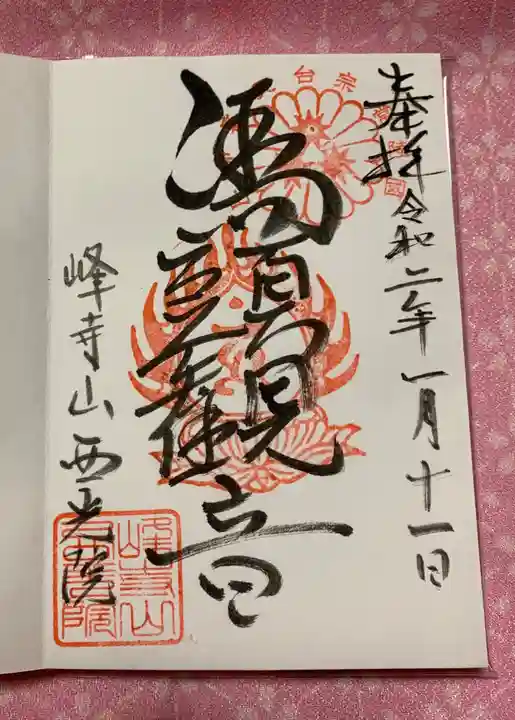 奉拝 令和二年一月十一日
馬頭観音
峰寺山 西光院
台宗
常陸國
峰寺山
西光院